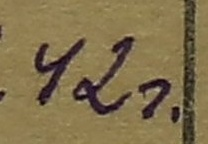 42г.